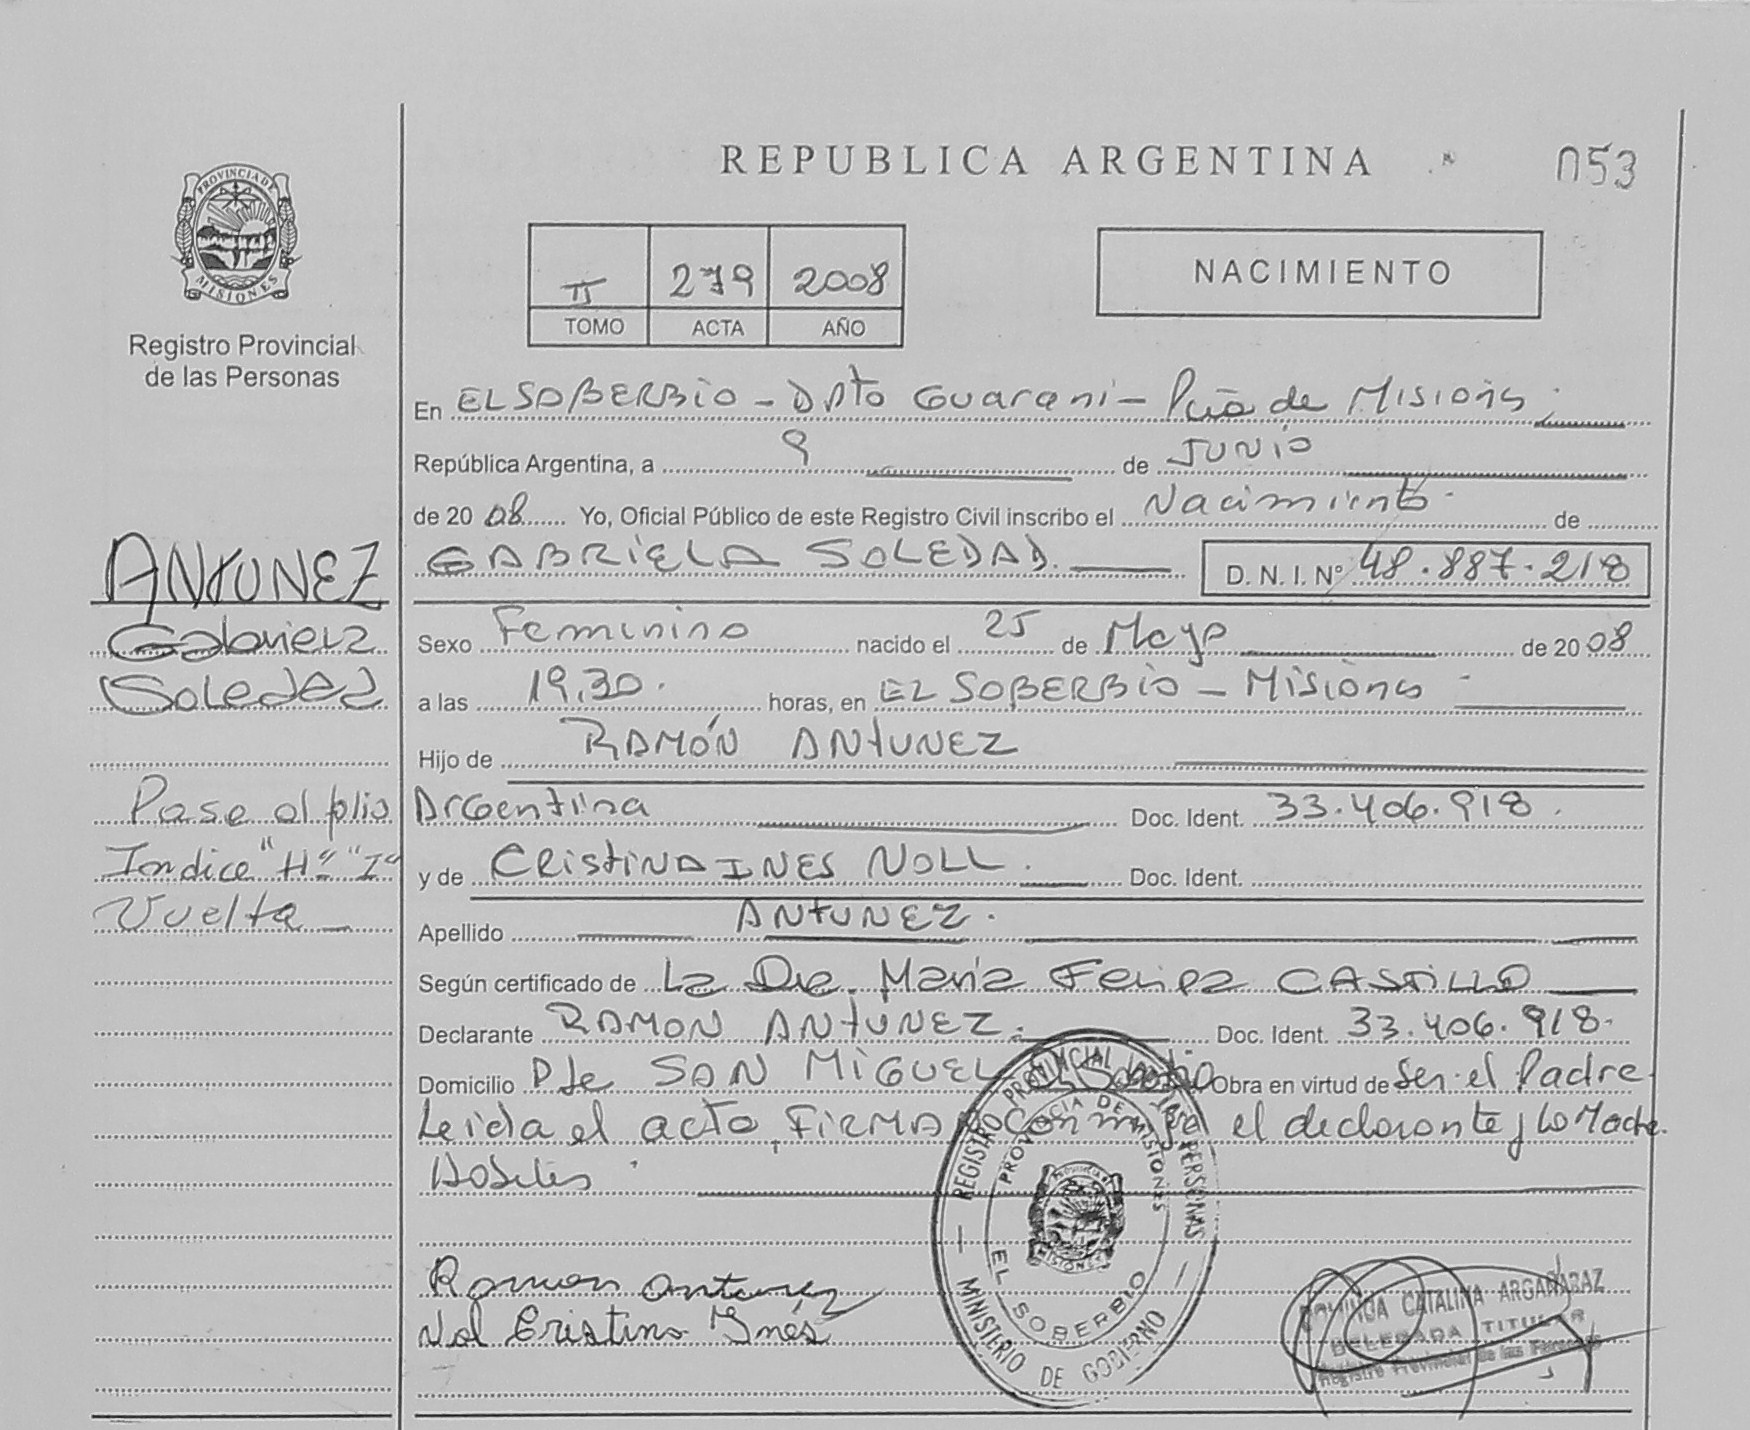 REPUBLICA ARGENTINA
053
PROVINCIA DE
MISIONES
Registro Provincial
de las Personas
II 279 2008
TOMO ACTA AÑO
NACIMIENTO
En EL SOBERBIO - DPto Guarani - Pcia de MISIONES
República Argentina, a 9 de JUNIO
de 20 08 Yo, Oficial Público de este Registro Civil inscribo el Nacimiento de
GABRIELA SOLEDAD. D. N. I. Nº 48.887.218
ANTUNEZ
Gabriela
Soledad
Sexo Femenino nacido el 25 de Mayo de 20 08
a las 19,30. horas, en EL SOBERBIO - MISIONES
Hijo de RAMÓN ANTUNEZ
Argentina Doc. Ident. 33.406.918.
y de CRISTINA INES NOLL. Doc. Ident.
Apellido ANTUNEZ.
Pase al folio
Indice "H" "I"
Vuelta
Según certificado de La Dra. María Felipa CASTILLO
Declarante RAMON ANTUNEZ. Doc. Ident. 33.406.918.
Domicilio Pje SAN MIGUEL El Soberbio Obra en virtud de Ser el Padre.
Leida el acta, FIRMAN conmigo el declarante y la Madre.
Ramon antunez
Nol Cristina Ynés
REGISTRO PROVINCIAL DE LAS PERSONAS
PROVINCIA DE MISIONES
EL SOBERBIO
MINISTERIO DE GOBIERNO
DOMINGA CATALINA ARGAÑARAZ
DELEGADA TITULAR
Registro Provincial de las Personas